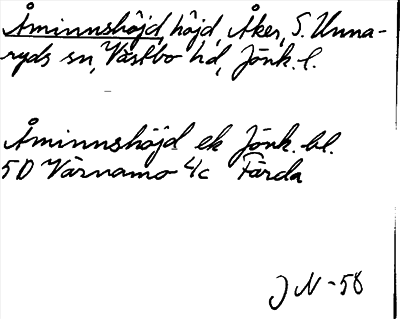 Åminnshöjd, höjd, Åker, S. Unna-
ryds sn, Västbo hd, Jönk. l.
Åminnshöjd ek Jönk. bl.
5D Värnamo 4c Färda
JN-58